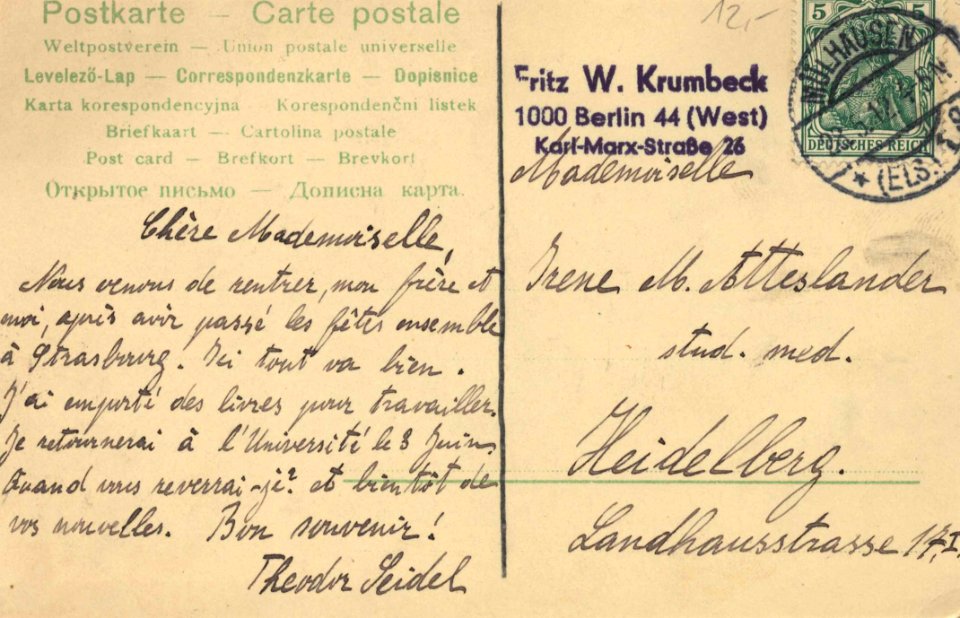 Postkarte — Carte postale
Weltpostverein — Union postale universelle
Levelező-Lap — Correspondenzkarte — Dopisnice
Karta korespondencyjna Korespondenční listek
Briefkaart — Cartolina postale
Post card — Brefkort — Brevkort
Открытое письмо — Дописна карта.
Chère Mademoiselle,
Nous venons de rentrer, mon frère et
moi, après avoir passé les fêtes ensemble
à Strasbourg. Ici tout va bien.
J'ai emporté des livres pour travailler.
Je retournerai à l'Université le 8 Juin.
Quand vous reverrai-je? et bientôt de
vos nouvelles. Bon souvenir!
Theodor Seidel
12,-
Fritz W. Krumbeck
1000 Berlin 44 (West)
Karl-Marx-Straße 26
5 5
DEUTSCHES REICH
MÜLHAUSEN
★ (ELS.)
Mademoiselle
Irene M. Atteslander
stud. med.
Heidelberg.
Landhausstrasse 17, I